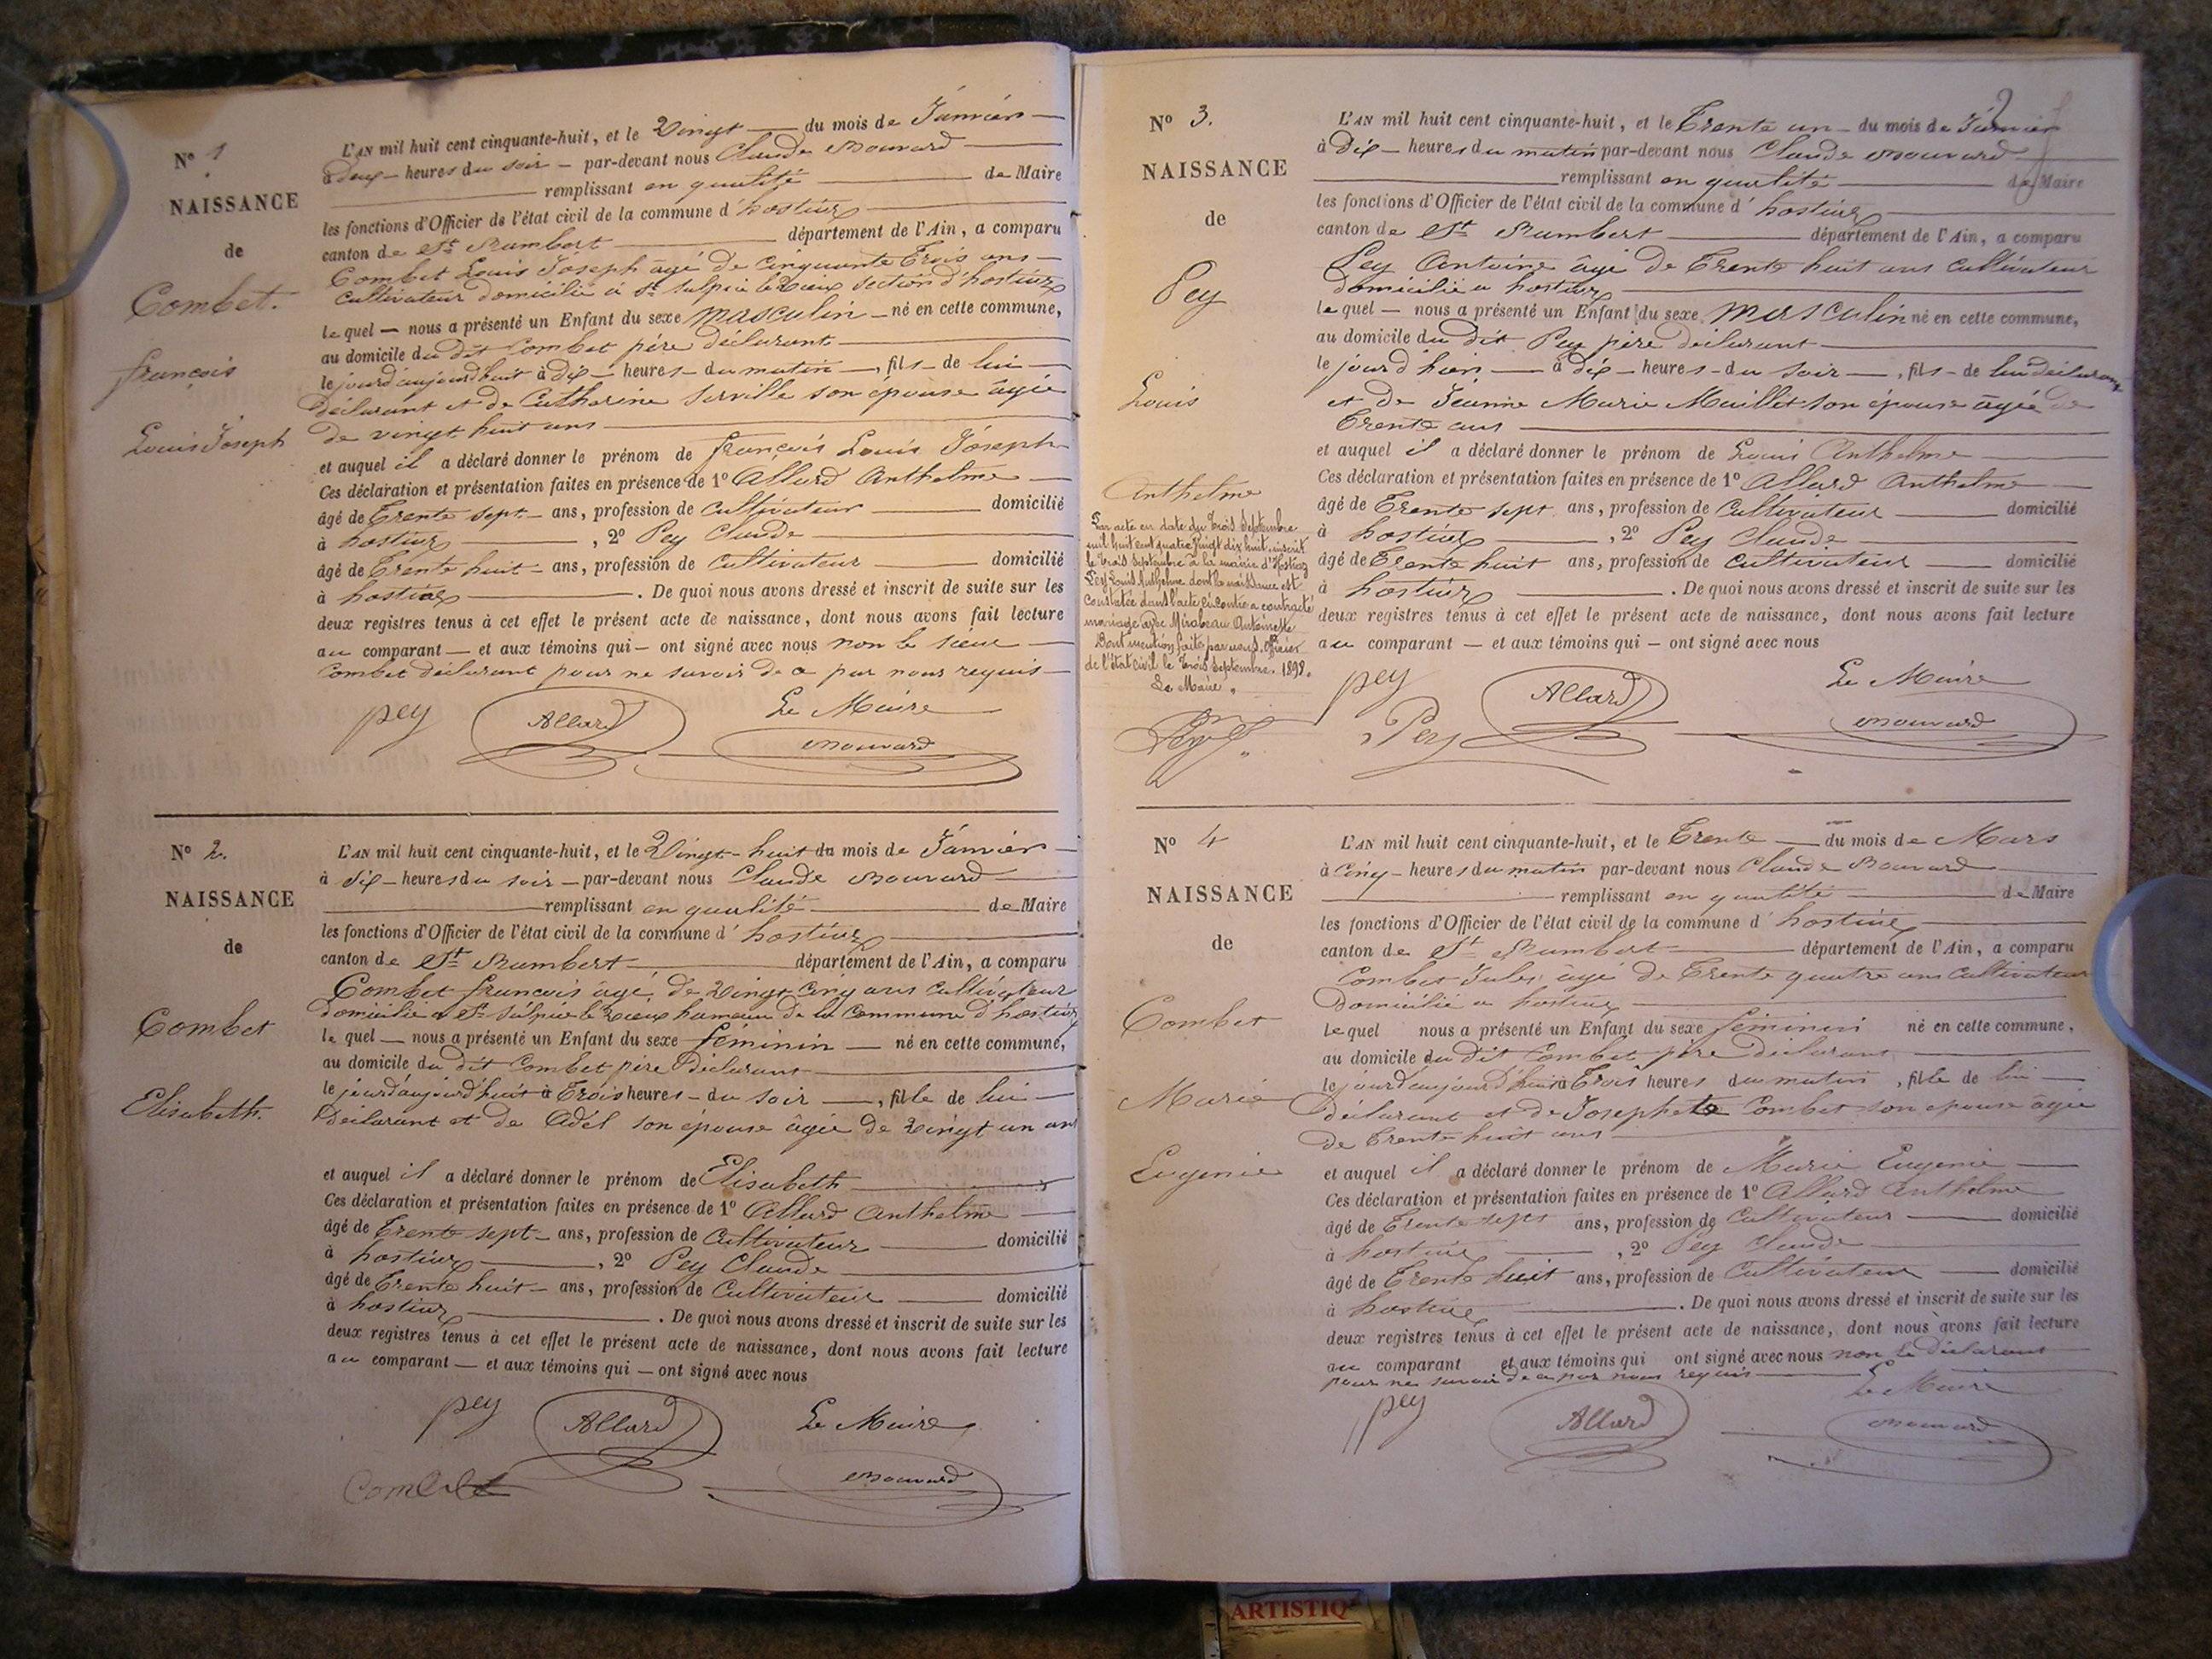 N° 1
NAISSANCE
de
Combet.
françois
Louis Joseph
L'AN mil huit cent cinquante-huit, et le Vingt du mois de Janvier
à deux heures du soir par-devant nous Claude Bouvard
remplissant en qualité de Maire
les fonctions d'Officier de l'état civil de la commune d'hostiaz
canton de St Rambert département de l'Ain, a comparu
Combet Louis Joseph âgé de Cinquante Trois ans
Cultivateur domicilié à St Sulpice le Vieux section d'hostiaz
lequel nous a présenté un Enfant du sexe masculin né en cette commune,
au domicile du dit Combet père déclarant
le jourd'aujourd'huit à Dix heures du matin, fils de lui
déclarant et de Catherine Serville son épouse âgée
de vingt huit ans
et auquel il a déclaré donner le prénom de françois Louis Joseph
Ces déclaration et présentation faites en présence de 1° Allard Anthelme
âgé de Trente sept ans, profession de Cultivateur domicilié
à hostiaz, 2° Pey Claude
âgé de Trente huit ans, profession de Cultivateur domicilié
à hostiaz. De quoi nous avons dressé et inscrit de suite sur les
deux registres tenus à cet effet le présent acte de naissance, dont nous avons fait lecture
au comparant et aux témoins qui ont signé avec nous non le sieur
Combet déclarant pour ne savoir de ce par nous requis
pey Allard Le Maire
Bouvard
N° 2.
NAISSANCE
de
Combet
Elisabeth.
L'AN mil huit cent cinquante-huit, et le Vingt-huit du mois de Janvier
à dix heures du soir par-devant nous Claude Bouvard
remplissant en qualité de Maire
les fonctions d'Officier de l'état civil de la commune d'hostiaz
canton de St Rambert département de l'Ain, a comparu
Combet françois âgé de Vingt Cinq ans Cultivateur
domicilié a St Sulpice le Vieux hameau de la Commune d'hostiaz
lequel nous a présenté un Enfant du sexe féminin né en cette commune,
au domicile du dit Combet père Déclarant
le jourd'aujourd'huit à Trois heures du soir, fille de lui
Déclarant et de Adèl son épouse âgée de Vingt un ans
et auquel il a déclaré donner le prénom de Elisabeth
Ces déclaration et présentation faites en présence de 1° Allard Anthelme
âgé de Trente sept ans, profession de Cultivateur domicilié
à hostiaz, 2° Pey Claude
âgé de Trente huit ans, profession de Cultivateur domicilié
à hostiaz. De quoi nous avons dressé et inscrit de suite sur les
deux registres tenus à cet effet le présent acte de naissance, dont nous avons fait lecture
au comparant et aux témoins qui ont signé avec nous
pey Allard Le Maire
Combet Bouvard
N° 3.
NAISSANCE
de
Pey
Louis
Anthelme
Par acte en date du trois Septembre
mil huit cent quatre vingt dix huit, inscrit
le trois Septembre à la mairie d'Hostiaz
Pey Louis Anthelme dont la naissance est
constatée dans l'acte ci-contre a contracté
mariage avec Mirabeau Antoinette
Dont mention faite par nous officier
de l'état civil le trois Septembre 1898.
Le Maire
Pey
L'AN mil huit cent cinquante-huit, et le Trente un du mois de Janvier
à Dix heures du matin par-devant nous Claude Bouvard
remplissant en qualité de Maire
les fonctions d'Officier de l'état civil de la commune d'hostiaz
canton de St Rambert département de l'Ain, a comparu
Pey Antoine âgé de Trente huit ans Cultivateur
domicilié a hostiaz
lequel nous a présenté un Enfant du sexe masculin né en cette commune,
au domicile du dit Pey père déclarant
le jour d'hier à dix heures du soir, fils de lui déclarant
et de Jeanne Marie Maillet son épouse âgée de
Trente ans
et auquel il a déclaré donner le prénom de Louis Anthelme
Ces déclaration et présentation faites en présence de 1° Allard Anthelme
âgé de Trente sept ans, profession de Cultivateur domicilié
à hostiaz, 2° Pey Claude
âgé de Trente huit ans, profession de Cultivateur domicilié
à hostiaz. De quoi nous avons dressé et inscrit de suite sur les
deux registres tenus à cet effet le présent acte de naissance, dont nous avons fait lecture
au comparant et aux témoins qui ont signé avec nous
pey Allard Le Maire
Pey Bouvard
N° 4
NAISSANCE
de
Combet
Marie
Eugenie
L'AN mil huit cent cinquante-huit, et le Trente du mois de Mars
à Cinq heures du matin par-devant nous Claude Bouvard
remplissant en qualité de Maire
les fonctions d'Officier de l'état civil de la commune d'hostiaz
canton de St Rambert département de l'Ain, a comparu
Combet Jules âgé de Trente quatre ans Cultivateur
Domicilié a hostiaz
lequel nous a présenté un Enfant du sexe féminin né en cette commune,
au domicile du dit Combet père Déclarant
le jourd'aujourd'huit à Trois heures du matin, fille de lui
Déclarant et de Josephete Combet son épouse âgée
de Trente huit ans
et auquel il a déclaré donner le prénom de Marie Eugenie
Ces déclaration et présentation faites en présence de 1° Allard Anthelme
âgé de Trente sept ans, profession de Cultivateur domicilié
à hostiaz, 2° Pey Claude
âgé de Trente huit ans, profession de Cultivateur domicilié
à hostiaz. De quoi nous avons dressé et inscrit de suite sur les
deux registres tenus à cet effet le présent acte de naissance, dont nous avons fait lecture
au comparant et aux témoins qui ont signé avec nous non le Déclarant
pour ne savoir de ce par nous requis Le Maire
pey Allard Bouvard
ARTISTIQ